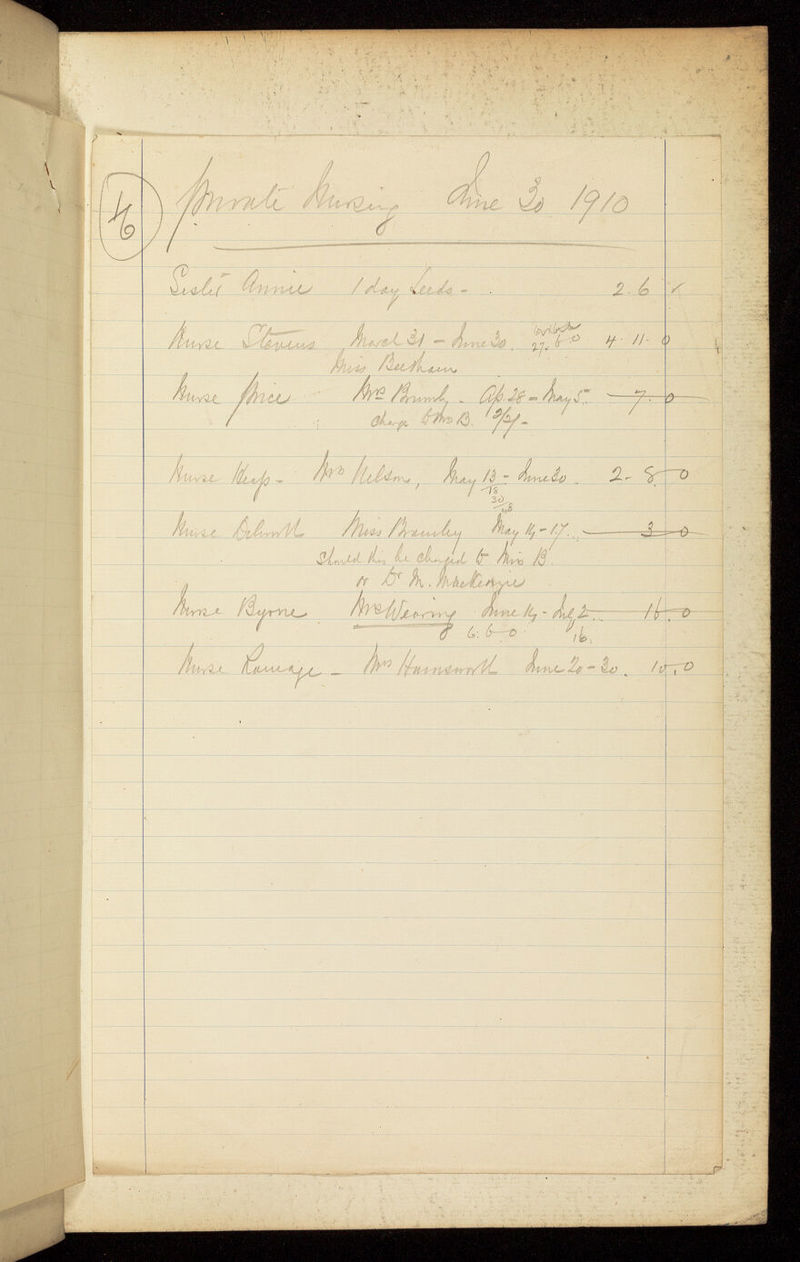 Private Nursing June 30 1910
Sister Annie 1 day Leeds - 2. 6
Nurse Stevens March 31 - June 30. 27. 6 0 4. 11. 0
Miss Beetham
Nurse Price Mrs Brumby - Ap. 28 - May 5. 7. 0
charge to Mrs B. 2/2/-
Nurse Heap - Mrs Nelson, May 13 - June 30. 2 - 8. 0
18
30
48
Nurse Dilworth Miss Bramley May 14 - 17. 3 0
Should this be charged to Miss B.
or Dr M. MacKenzie
Nurse Byrne Mrs Wearing June 14 - July 2. 16. 0
6. 6 0 16.
Nurse Ramage - Mrs Hainsworth June 20 - 30. 10. 0